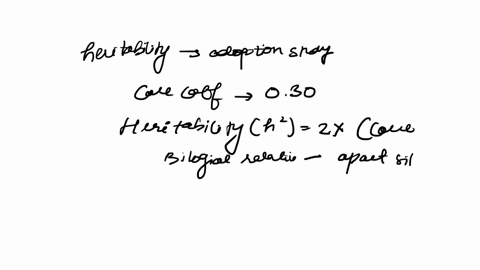 heritability → adoption study
Corr coeff → 0.30
Heritability (h²) = 2x (Corr
Bilogial relativ — apart sil